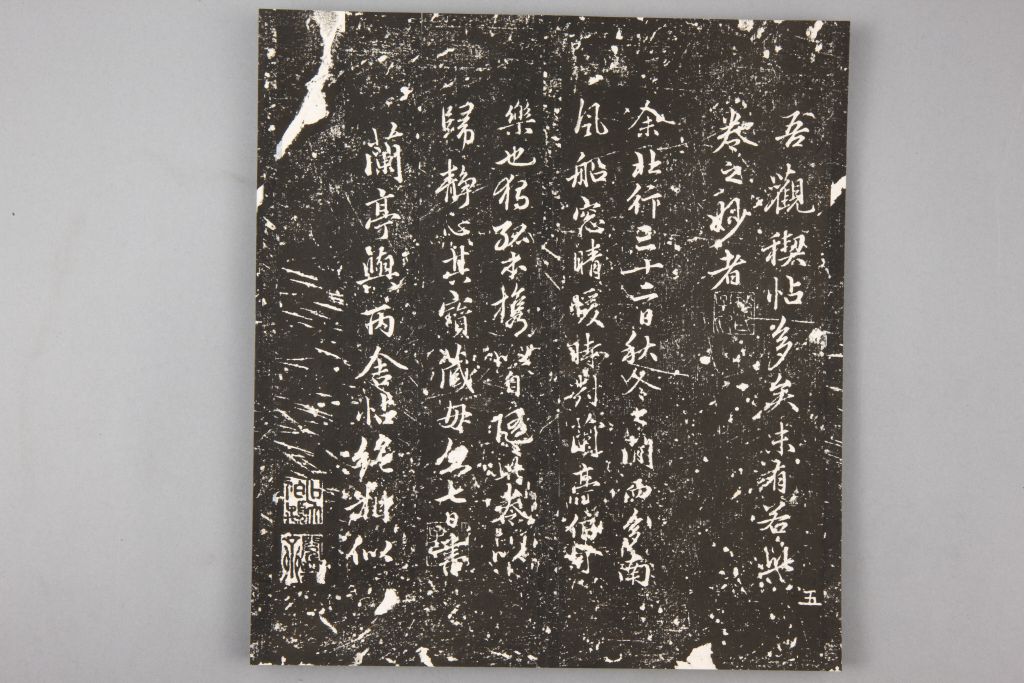 吾觀禊帖多矣未有若此
卷之妙者
余北行三十二日秋冬之間而多南
風船窓晴暖時對蘭亭信可
樂也獨孤本携以自隨此卷以
歸静心其寶藏毋忽七日書
蘭亭與丙舍帖絶相似
五